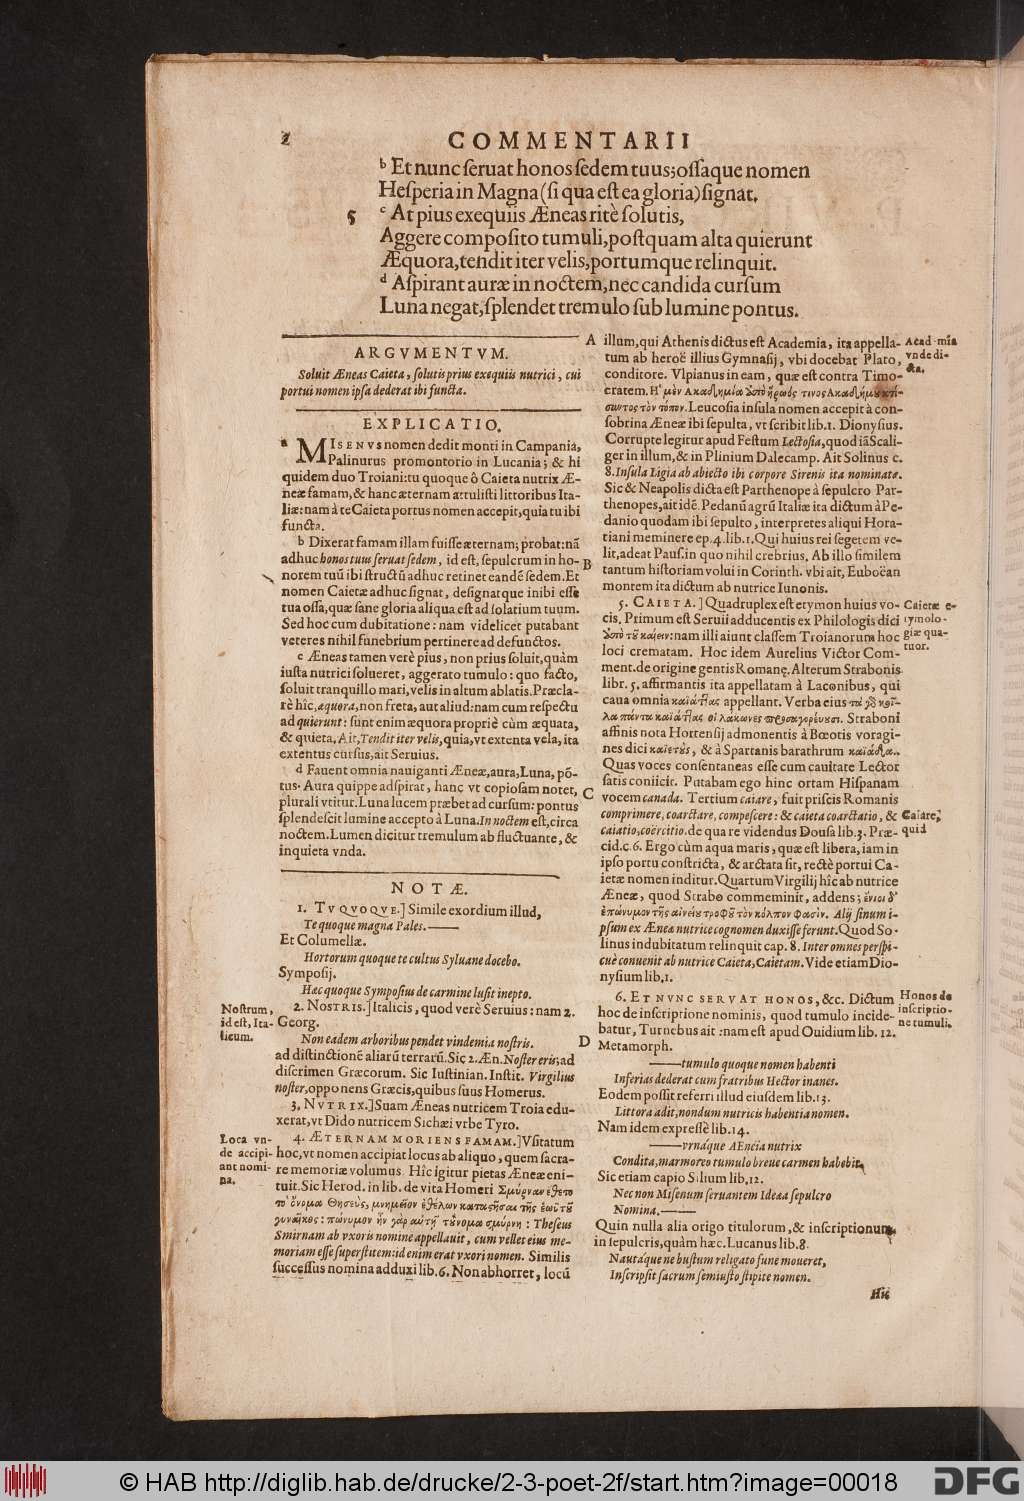 2
COMMENTARII
b Et nunc ſeruat honos ſedem tuus; oſſaque nomen
Heſperia in Magna (ſi qua eſt ea gloria) ſignat.
5 c At pius exequiis Æneas ritè ſolutis,
Aggere compoſito tumuli, poſtquam alta quierunt
Æquora, tendit iter velis, portumque relinquit.
d Aſpirant auræ in noctem, nec candida curſum
Luna negat, ſplendet tremulo ſub lumine pontus.
ARGVMENTVM.
Soluit Æneas Caieta, ſolutis prius exequiis nutrici, cui
portui nomen ipſa dederat ibi functa.
EXPLICATIO.
a MISENVS nomen dedit monti in Campania,
Palinurus promontorio in Lucania; & hi
quidem duo Troiani: tu quoque ô Caieta nutrix Æ-
neæ famam, & hanc æternam attuliſti littoribus Ita-
liæ: nam à te Caieta portus nomen accepit, quia tu ibi
functa.
b Dixerat famam illam fuiſſe æternam; probat: nã
adhuc honos tuus ſeruat ſedem, id eſt, ſepulcrum in ho-
norem tuũ ibi ſtructũ adhuc retinet eandẽ ſedem. Et
nomen Caietæ adhuc ſignat, deſignatque inibi eſſe
tua oſſa, quæ ſane gloria aliqua eſt ad ſolatium tuum.
Sed hoc cum dubitatione: nam videlicet putabant
veteres nihil funebrium pertinere ad defunctos.
c Æneas tamen verè pius, non prius ſoluit, quàm
iuſta nutrici ſolueret, aggerato tumulo: quo facto,
ſoluit tranquillo mari, velis in altum ablatis. Præcla-
rè hîc, æquora, non freta, aut aliud: nam cum reſpectu
ad quierunt: ſunt enim æquora propriè cùm æquata,
& quieta. Ait, Tendit iter velis, quia, vt extenta vela, ita
extentus curſus, ait Seruius.
d Fauent omnia nauiganti Æneæ, aura, Luna, põ-
tus. Aura quippe adſpirat, hanc vt copioſam notet,
plurali vtitur. Luna lucem præbet ad curſum: pontus
ſplendeſcit lumine accepto à Luna. In noctem eſt, circa
noctem. Lumen dicitur tremulum ab fluctuante, &
inquieta vnda.
NOTÆ.
1. TV QVOQVE.] Simile exordium illud,
Te quoque magna Pales.
Et Columellæ.
Hortorum quoque te cultus Syluane docebo.
Sympoſij.
Hæc quoque Sympoſius de carmine luſit inepto.
Noſtrum,
id eſt, Ita-
licum.
2. NOSTRIS.] Italicis, quod verè Seruius: nam 2.
Georg.
Non eadem arboribus pendet vindemia noſtris.
ad diſtinctionẽ aliarũ terrarũ. Sic 2. Æn. Noſter eris; ad
diſcrimen Græcorum. Sic Iuſtinian. Inſtit. Virgilius
noſter, opponens Græcis, quibus ſuus Homerus.
3. NVTRIX.] Suam Æneas nutricem Troia edu-
xerat, vt Dido nutricem Sichæi vrbe Tyro.
Loca vn-
de accipi-
ant nomi-
na.
4. ÆTERNAM MORIENS FAMAM.] Vſitatum
hoc, vt nomen accipiat locus ab aliquo, quem ſacra-
re memoriæ volumus. Hîc igitur pietas Æneæ eni-
tuit. Sic Herod. in lib. de vita Homeri Σμύρναν ἔθετο
τὸ ὄνομα Θησεὺς, μνημεῖον ἐθέλων καταςῆσαι τῆς ἑωῦτοῦ
γυναῖκος: πώνυμον ἦν γὰρ αὐτῇ τὔνομα σμύρνη: Theſeus
Smirnam ab vxoris nomine appellauit, cum vellet eius me-
moriam eſſe ſuperſtitem: id enim erat vxori nomen. Similis
ſucceſſus nomina adduxi lib. 6. Non abhorret, locũ
A
B
C
D
illum, qui Athenis dictus eſt Academia, ita appella-
tum ab heroë illius Gymnaſij, vbi docebat Plato,
conditore. Vlpianus in eam, quæ eſt contra Timo-
cratem. Ἡ μὲν Ακαδημία ὑπὸ ἥρωός τινος Ακαδήμου κτί-
σαντος τὸν τόπον. Leucoſia inſula nomen accepit à con-
ſobrina Æneæ ibi ſepulta, vt ſcribit lib. 1. Dionyſius.
Corrupte legitur apud Feſtum Lectoſia, quod iã Scali-
ger in illum, & in Plinium Dalecamp. Ait Solinus c.
8. Inſula Ligia ab abiecto ibi corpore Sirenis ita nominata.
Sic & Neapolis dicta eſt Parthenope à ſepulcro Par-
thenopes, ait idẽ. Pedanũ agrũ Italiæ ita dictum à Pe-
danio quodam ibi ſepulto, interpretes aliqui Hora-
tiani meminere ep. 4. lib. 1. Qui huius rei ſegetem ve-
lit, adeat Pauſ. in quo nihil crebrius. Ab illo ſimilem
tantum hiſtoriam volui in Corinth. vbi ait, Euboëan
montem ita dictum ab nutrice Iunonis.
Acad mia
vnde di-
cta.
5. CAIETA.] Quadruplex eſt etymon huius vo-
cis. Primum eſt Seruii adducentis ex Philologis dici
ὑπὸ τοῦ καίειν: nam illi aiunt claſſem Troianorum hoc
loci crematam. Hoc idem Aurelius Victor Com-
ment. de origine gentis Romanę. Alterum Strabonis
libr. 5. affirmantis ita appellatam à Laconibus, qui
caua omnia καϊάτας appellant. Verba eius τὰ γὸ κοῖ-
λα πάντα καϊάτας οἱ λάκωνες προσαγορέυουσι. Straboni
affinis nota Hortenſij admonentis à Bœotis voragi-
nes dici καϊετοὺς, & à Spartanis barathrum καϊάδα.
Quas voces conſentaneas eſſe cum cauitate Lector
ſatis coniicit. Putabam ego hinc ortam Hiſpanam
vocem canada. Tertium caiare, fuit priſcis Romanis
comprimere, coarctare, compeſcere: & caieta coarctatio, &
caiatio, coërcitio. de qua re videndus Douſa lib. 3. Præ-
cid. c. 6. Ergo cùm aqua maris, quæ eſt libera, iam in
ipſo portu conſtricta, & arctata ſit, rectè portui Ca-
ietæ nomen inditur. Quartum Virgilij hîc ab nutrice
Æneæ, quod Strabo commeminit, addens; ἔνιοι δ'
ἐπώνυμον τῆς αἰνείου τροφοῦ τὸν κόλπον φασὶν. Alij ſinum i-
pſum ex Æneæ nutrice cognomen duxiſſe ferunt. Quod So-
linus indubitatum relinquit cap. 8. Inter omnes perſpi-
cuè conuenit ab nutrice Caieta, Caietam. Vide etiam Dio-
nyſium lib. 1.
Caietæ e-
tymolo-
giæ qua-
tuor.
Caiare,
quid
6. ET NVNC SERVAT HONOS, &c. Dictum
hoc de inſcriptione nominis, quod tumulo incide-
batur, Turnebus ait: nam eſt apud Ouidium lib. 12.
Metamorph.
tumulo quoque nomen habenti
Inferias dederat cum fratribus Hector inanes.
Eodem poſſit referri illud eiuſdem lib. 13.
Littora adit, nondum nutricis habentia nomen.
Nam idem expreſſè lib. 14.
vrnáque AEneia nutrix
Condita, marmoreo tumulo breue carmen habebit.
Sic etiam capio Silium lib. 12.
Nec non Miſenum ſeruantem Idæa ſepulcro
Nomina.
Quin nulla alia origo titulorum, & inſcriptionum,
in ſepulcris, quàm hæc. Lucanus lib. 8.
Nautáque ne buſtum religato fune moueret,
Inſcripſit ſacrum ſemiuſto ſtipite nomen.
Honos de
inſcriptio-
ne tumuli.
Hic
© HAB http://diglib.hab.de/drucke/2-3-poet-2f/start.htm?image=00018
DFG